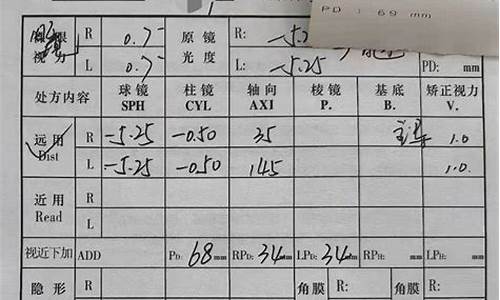 PD : 69 mm
视力 R 0.7 原镜光度 R: -5.2
L 0.7 L: -5.25 PD: mm
处方内容 球镜 SPH 柱镜 CYL 轴向 AXI 棱镜 P. 基底 B. 矫正视力 V.
远用 Dist R -5.25 -0.50 35 1.0
L -5.25 -0.50 145 1.0
近用 Read R
L
视近下加 ADD PD: 68 mm RPD: 34 mm LPD: 34 mm RPH: mm LPH: mm
隐形 R 角膜 R: 角膜 R: